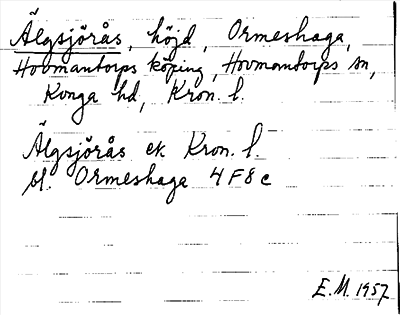 Älgsjörås, höjd, Ormeshaga,
Hovmantorps köping, Hovmantorps sn,
Konga hd, Kron. l.
Älgsjörås ek Kron. l.
bl. Ormeshaga 4F8c
E.M. 1957